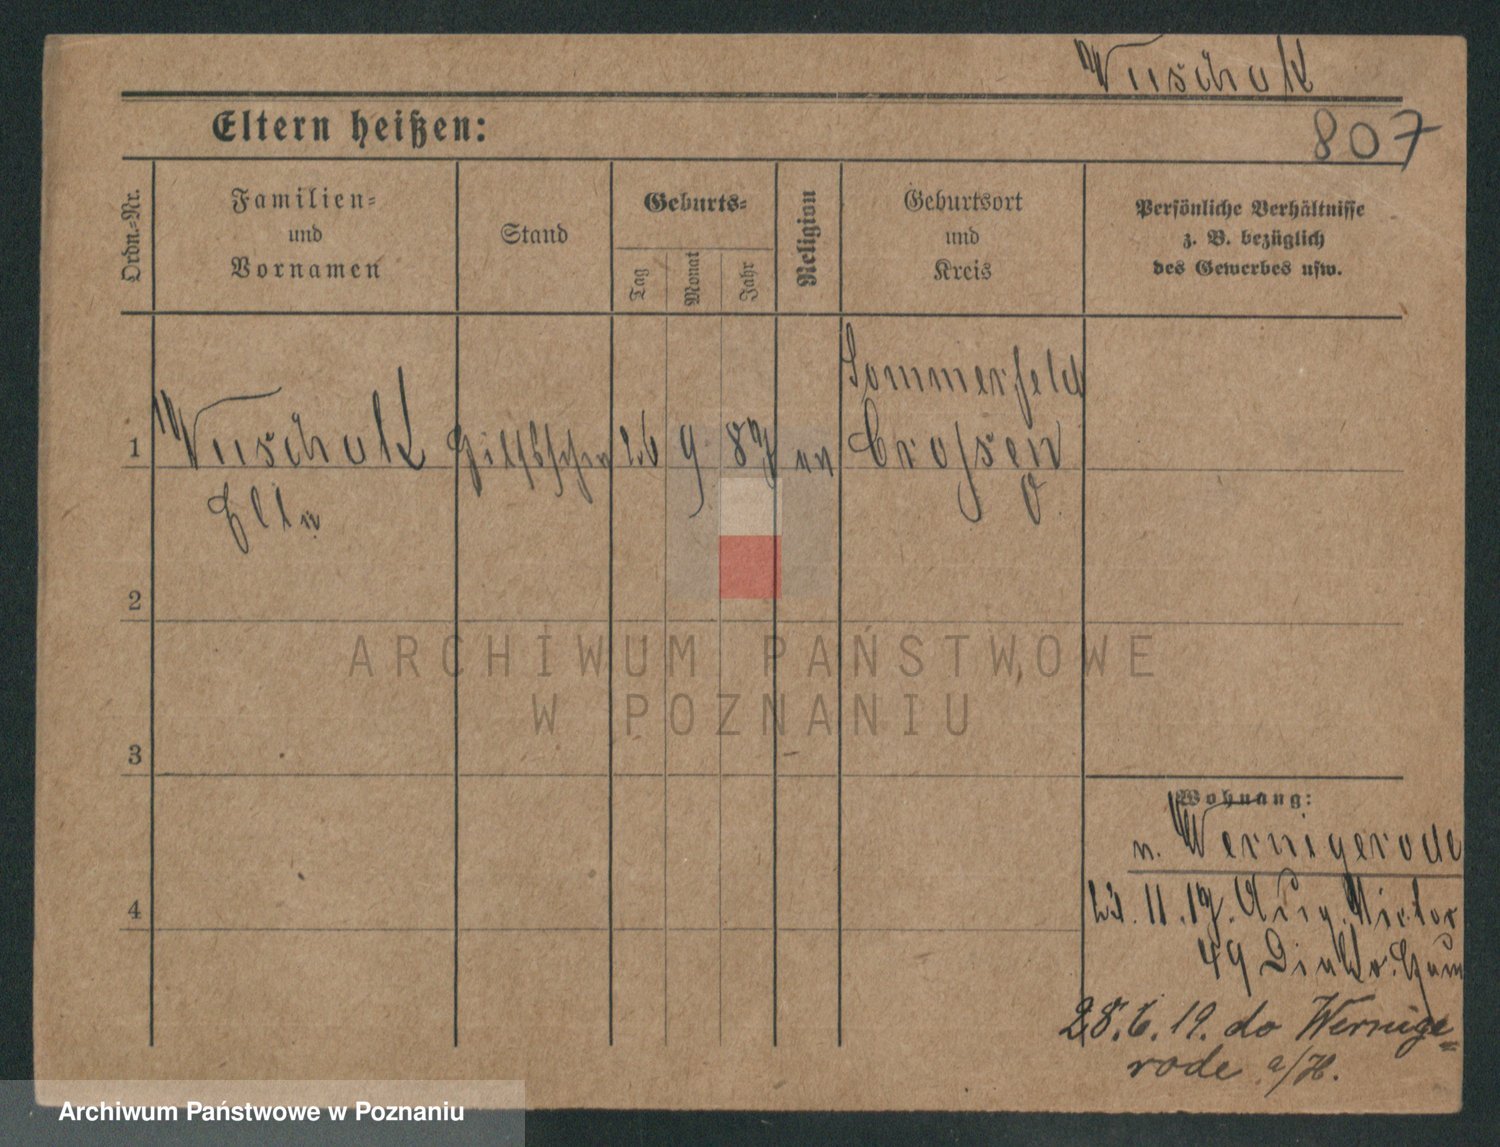 Wuscholl
Eltern heißen:
807
Ordn.-Nr.
Familien-
und
Vornamen
Stand
Geburts-
Tag
Monat
Jahr
Religion
Geburtsort
und
Kreis
Persönliche Verhältnisse
z. B. bezüglich
des Gewerbes usw.
Sommerfeld
1
26 9. 87
Crossen
O
2
ARCHIWUM PAŃSTWOWE
W POZNANIU
3
Wohnung:
n. Wernigerode
4
11. 17. Aug. Victor
49
28.6.19. do Wernige=
rode a/H.
Archiwum Państwowe w Poznaniu